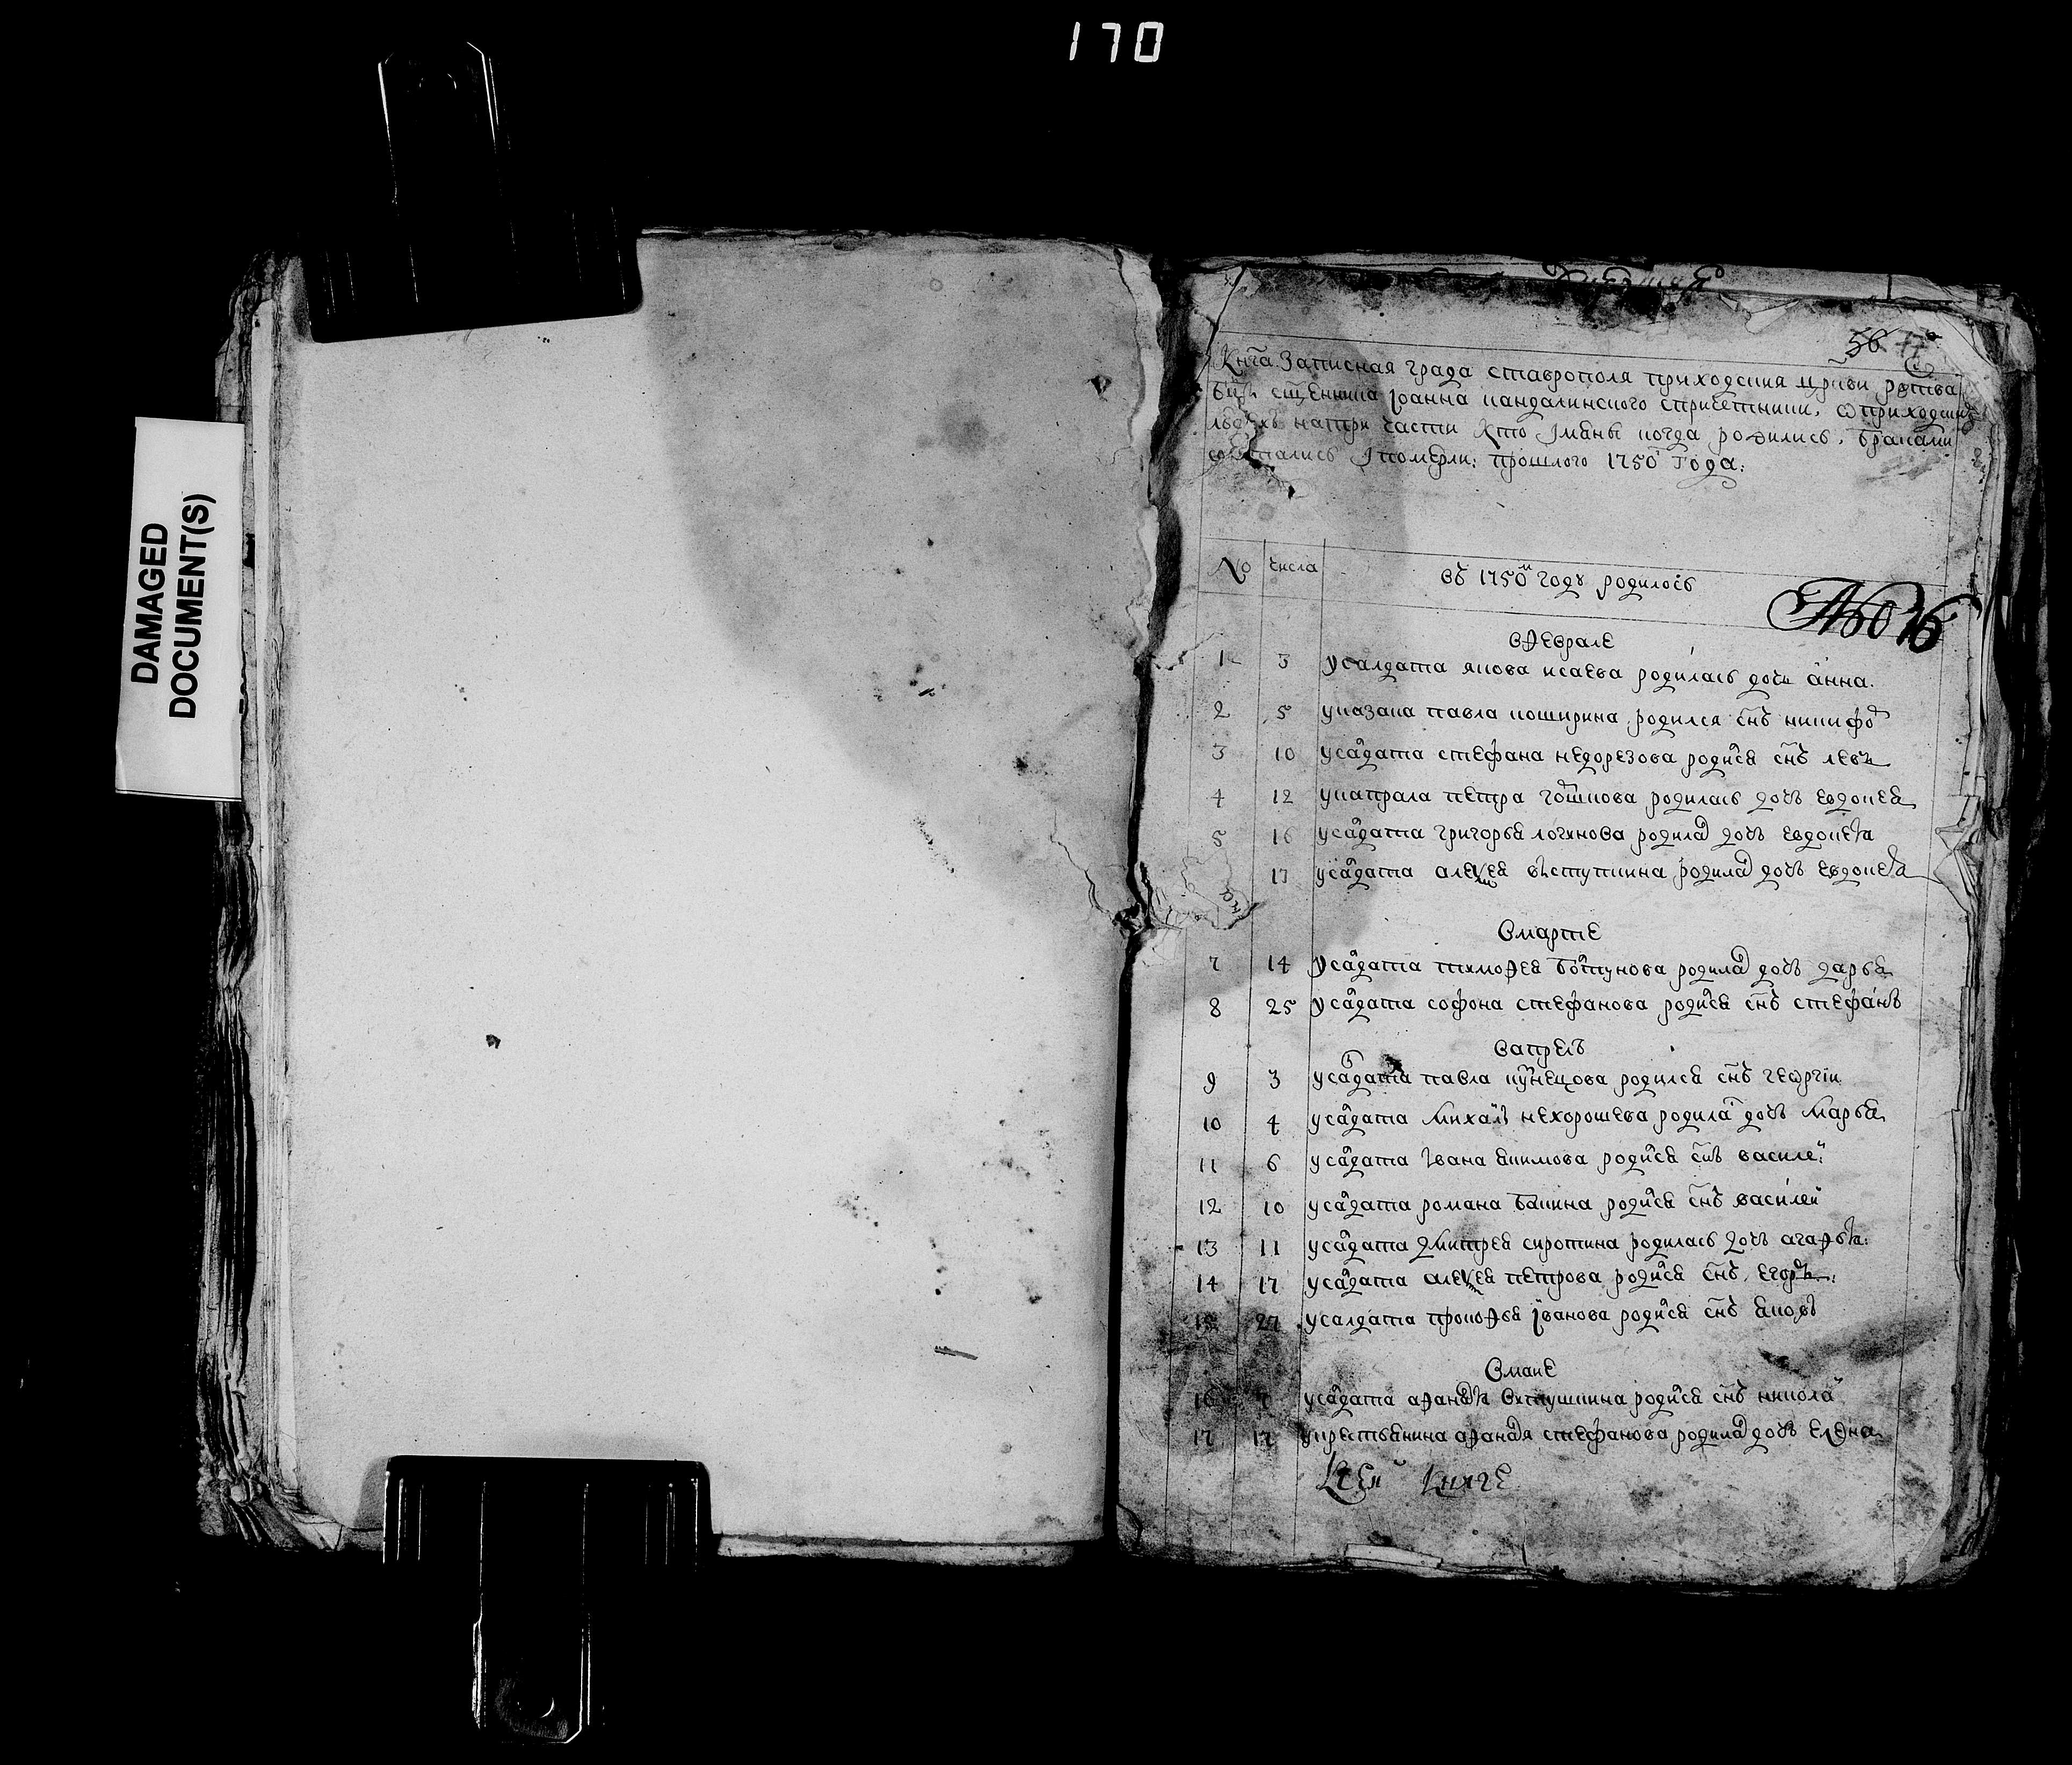 170
DAMAGED
DOCUMENT(S)
56
Книга Записная града ставрополя приходския цркви рожтва
бцы сщенника Іоанна кандалинского спричетники, ѡ приходских
людехъ натри части Кто Імены когда родились, браками
сочетались Іпомерли: прошлого 1750 года:
No числа въ 1750м году родилось
вфеврале
1 3 усалдата якова исаева родилась дочь анна.
2 5 указака павла коширина родился снъ никифо
3 10 усалдата стефана недорезова родился снъ левъ
4 12 укапрала петра горшкова родилась дочь евдокея
5 16 усалдата григорья логинова родилас дочь евдокея
17 усалдата алексея вступкина родилас дочь евдокея
Вмарте
7 14 Усалдата тимофея болтунова родилас дочь дарья
8 25 Усалдата софона стефанова родился снъ стефанъ
Вапреле
9 3 усалдата павла кузнецова родился снъ геѡргіи
10 4 усалдата михаила нехорошева родилас дочь марья
11 6 усалдата Івана якимова родился снъ василей
12 10 усалдата романа бакина родился снъ василей
13 11 усалдата дмитрея сиротина родилась дочь агафья:
14 17 усалдата алексея петрова родился снъ егоръ:
15 27 усалдата прокофья Іванова родился снъ яковъ
Вмаие
16 7 усалдата афанасья родился снъ николай
17 12 укрестьянина афанасья стефанова родилас дочь елена
Ксей книге